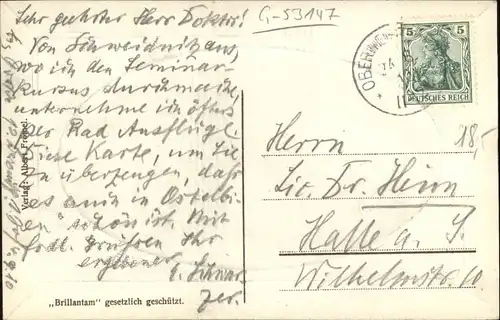 Sehr geehrter Herr Doktor!
Von Schweidnitz aus,
wo ich den Seminar-
kursus durchmache,
unternehme ich öfters
per Rad Ausflüge.
Diese Karte, um Sie
zu überzeugen, daß
es auch in Ostelbi-
en schön ist. Mit
frdl. Grüßen Ihr
ergebener
E. Schwar-
zer.
G-53147
OBER
5 5
DEUTSCHES REICH
18,-
Herrn
Lic. Dr. Heim
Halle a. S.
Wilhelmstr. 10.
Verlag: Albert
„Brillantam" gesetzlich geschützt.